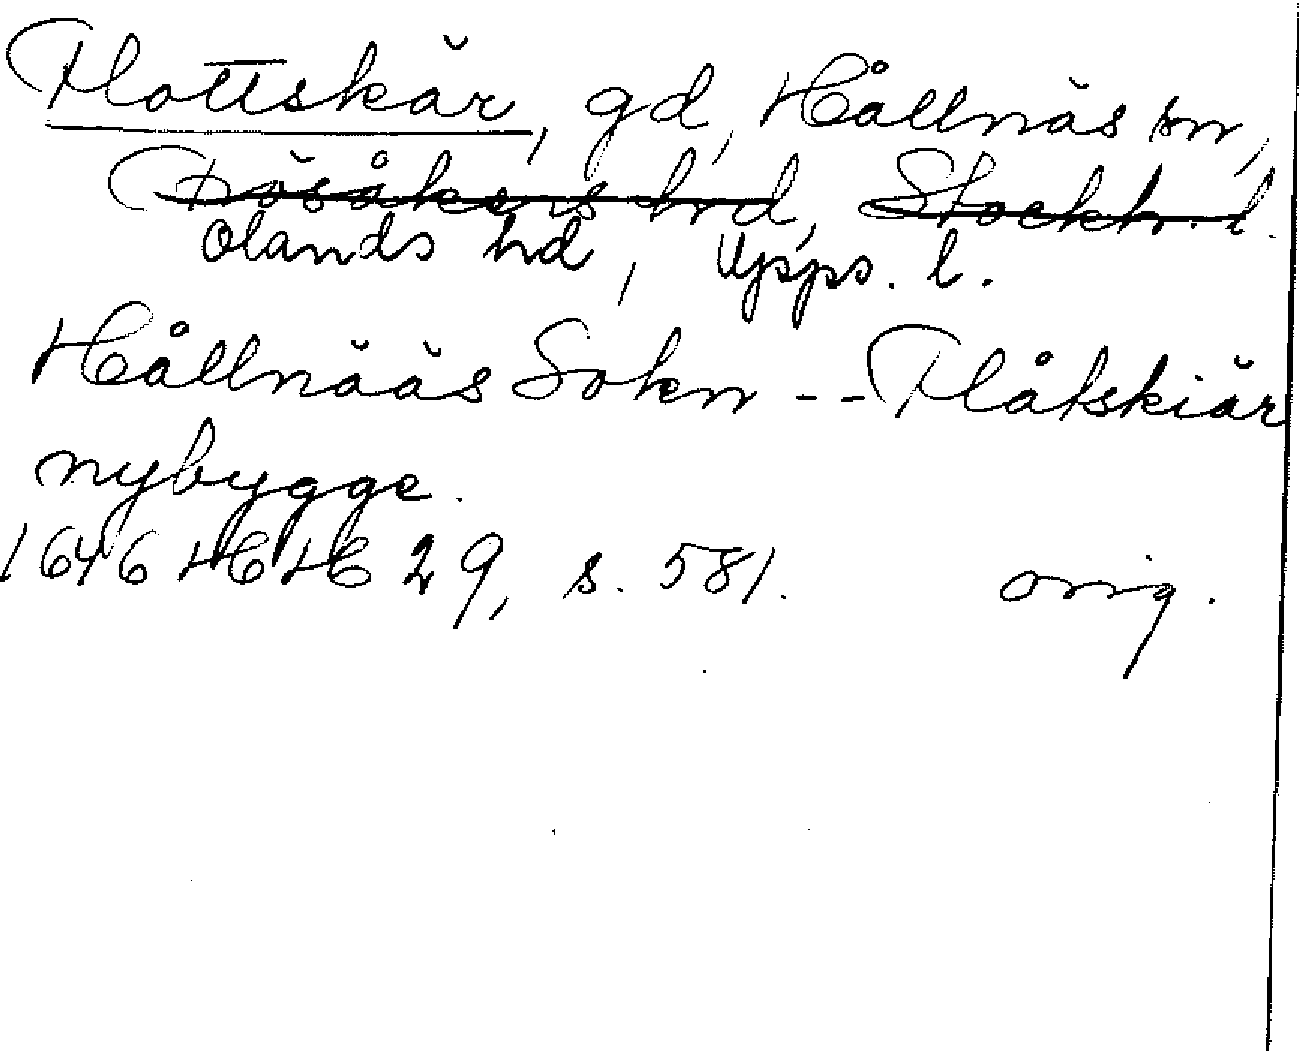 Flottskär, gd, Hållnäs sn,
Frösåkers hrd, Stockh. l.
Olands hd, Upps. l.
Hållnääs Sokn -- Flåtskiär
nybygge.
1646 HH 29, s. 581. orig.